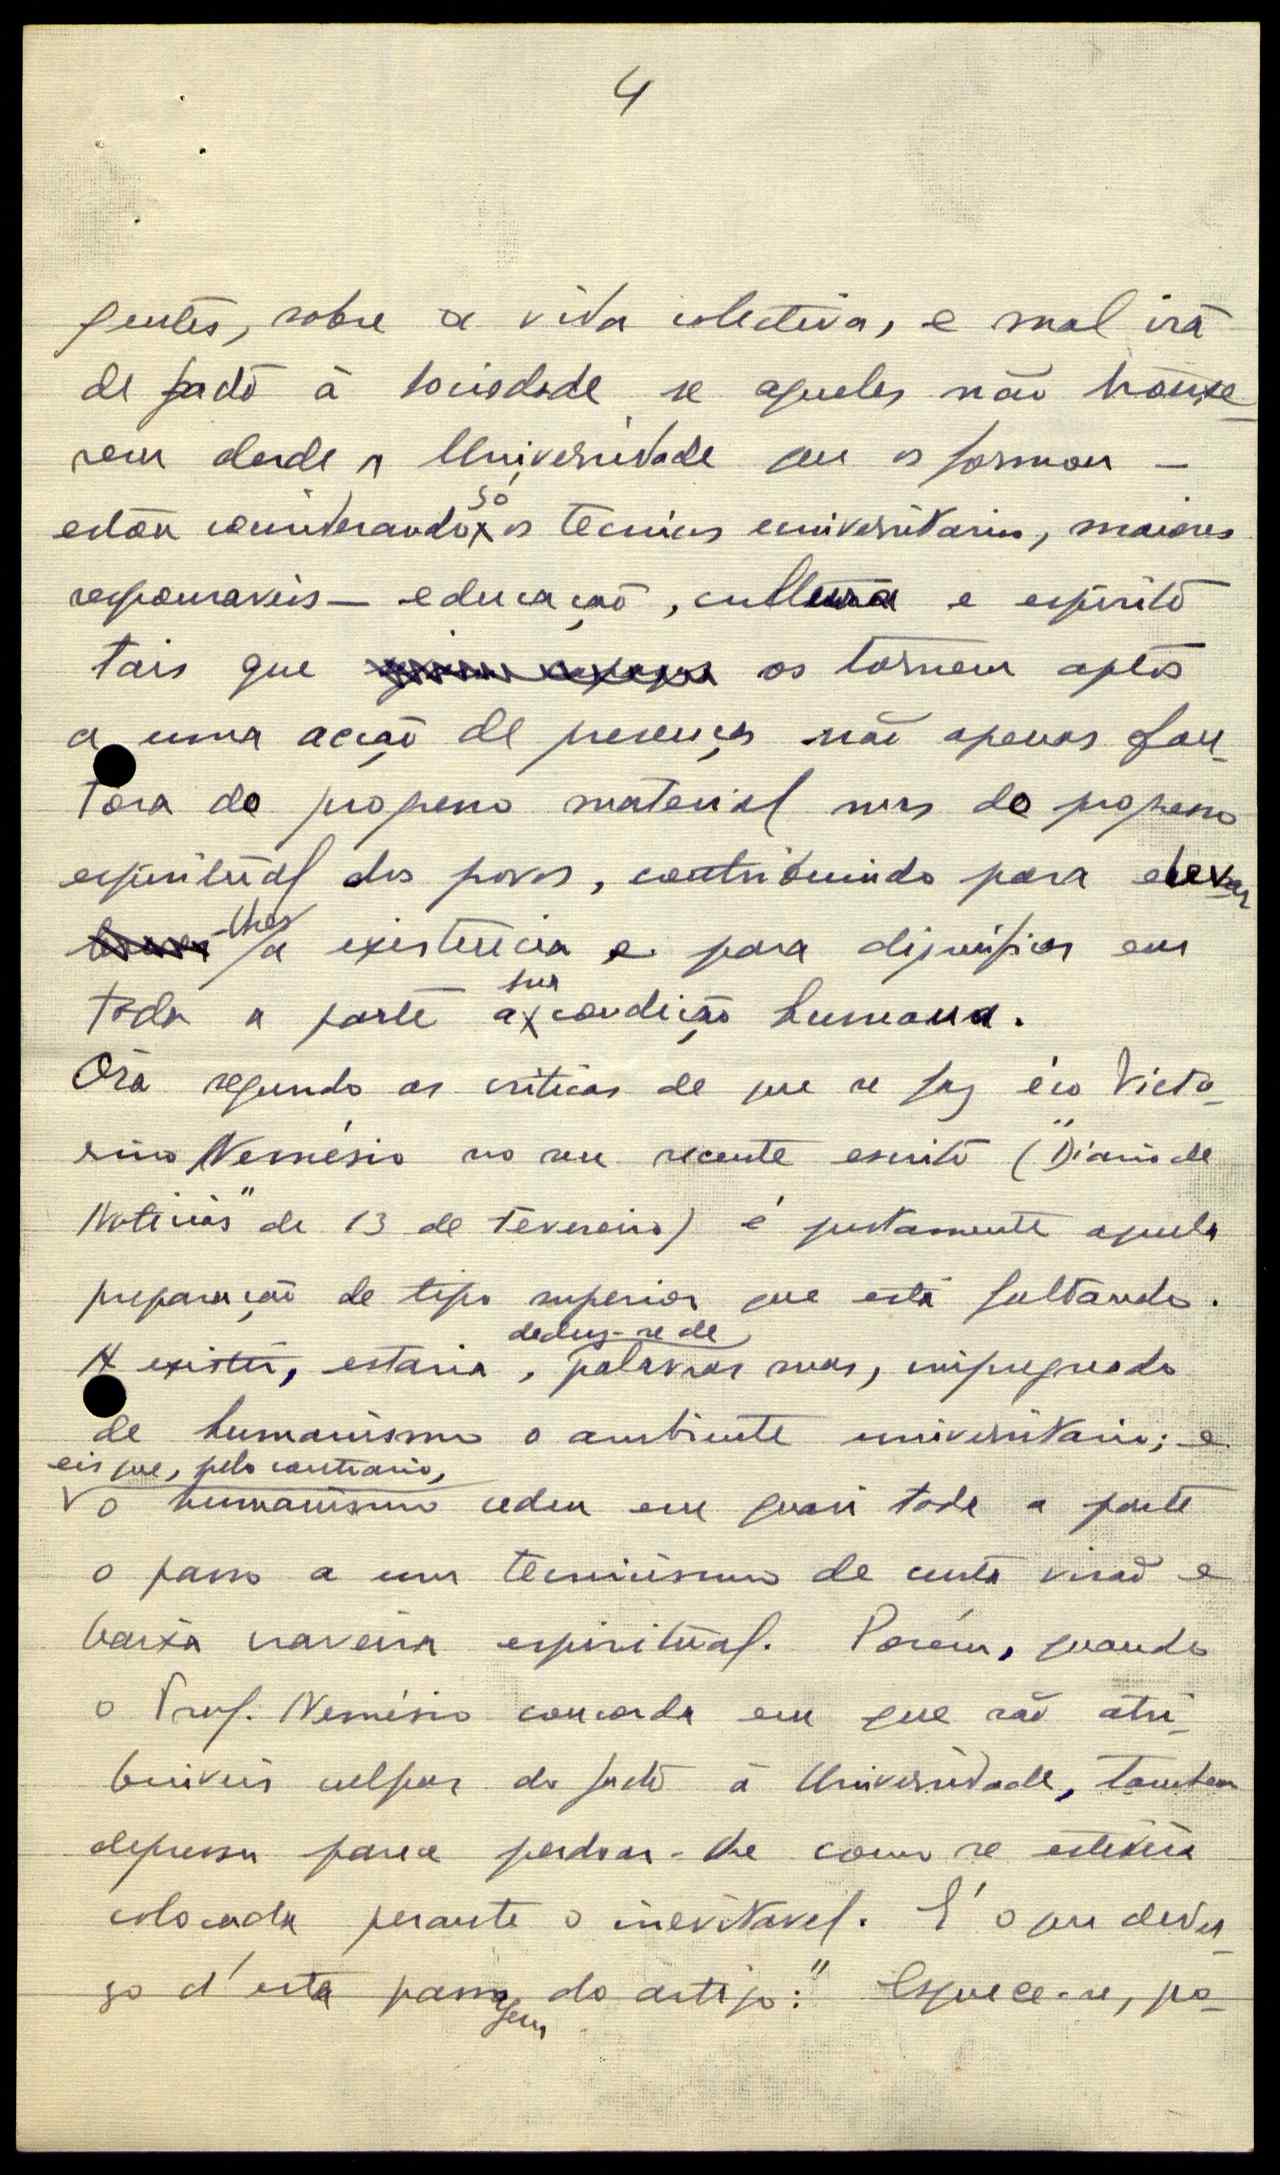 4
gentes, sobre a vida colectiva, e mal irá
de facto à sociedade se aqueles não trouxe-
rem desde a Universidade que os formou —
estou considerando só os tecnicos universitarios, maiores
responsaveis — educação, cultura e espirito
tais que os tornem aptos
a uma acção de presença não apenas fau-
tora do progresso material mas do progresso
espiritual dos povos, contribuindo para elevar
-lhes a existencia e para dignificar em
toda a parte a sua condição humana.
Ora segundo as criticas de que se faz éco Victo-
rino Nemésio no seu recente escrito ("Diario de
Noticias" de 13 de Fevereiro) é justamente aquela
preparação de tipo superior que está faltando.
A existir, estaria, deduz-se de palavras suas, impregnado
de humanismo o ambiente universitario; e
eis que, pelo contrario,
o humanismo cedeu em quasi toda a parte
o passo a um tecnicismo de curta visão e
baixa craveira espiritual. Porém, quando
o Prof. Nemésio concorda em que são atri-
buiveis culpas do facto à Universidade, tambem
depressa parece perdoar-lhe como se estivera
colocada perante o inevitavel. É o que deduz-
go d'esta passagem do artigo: "Esquece-se, po-